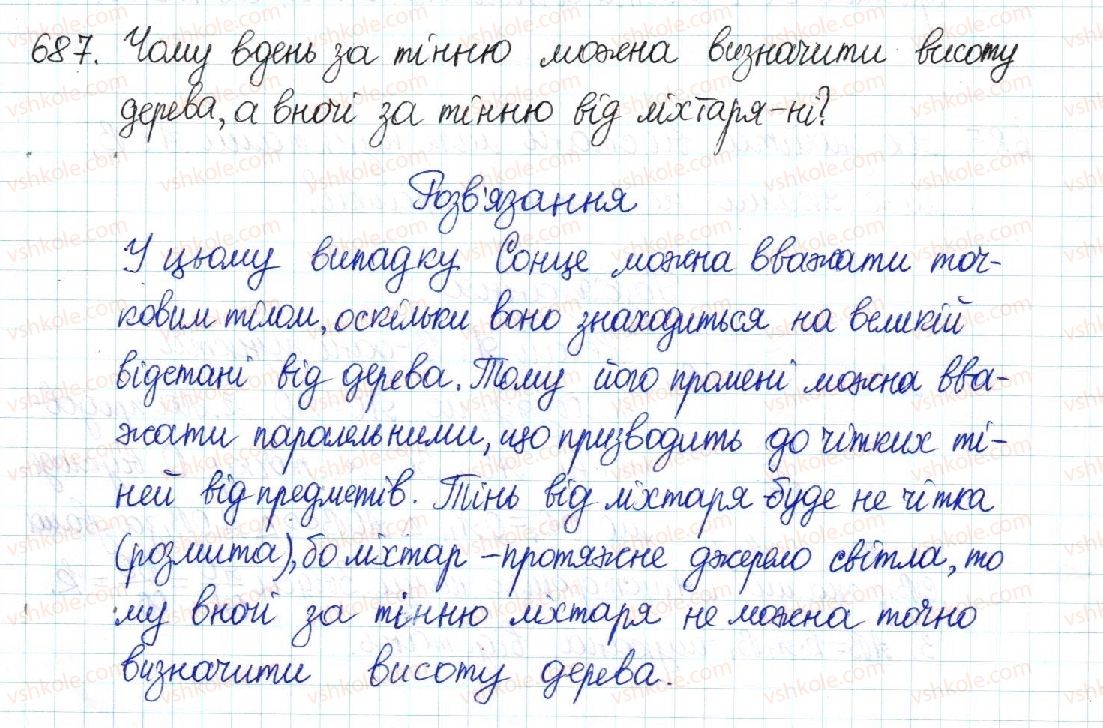 687. Чому вдень за тінню можна визначити висоту
дерева, а вночі за тінню від ліхтаря-ні?
Розв'язання
У цьому випадку Сонце можна вважати точ-
ковим тілом, оскільки воно знаходиться на великій
відстані від дерева. Тому його промені можна вва-
жати паралельними, що призводить до чітких ті-
ней від предметів. Тінь від ліхтаря буде не чітка
(розмита), бо ліхтар - протяжне джерело світла, то
му вночі за тінню ліхтаря не можна точно
визначити висоту дерева.